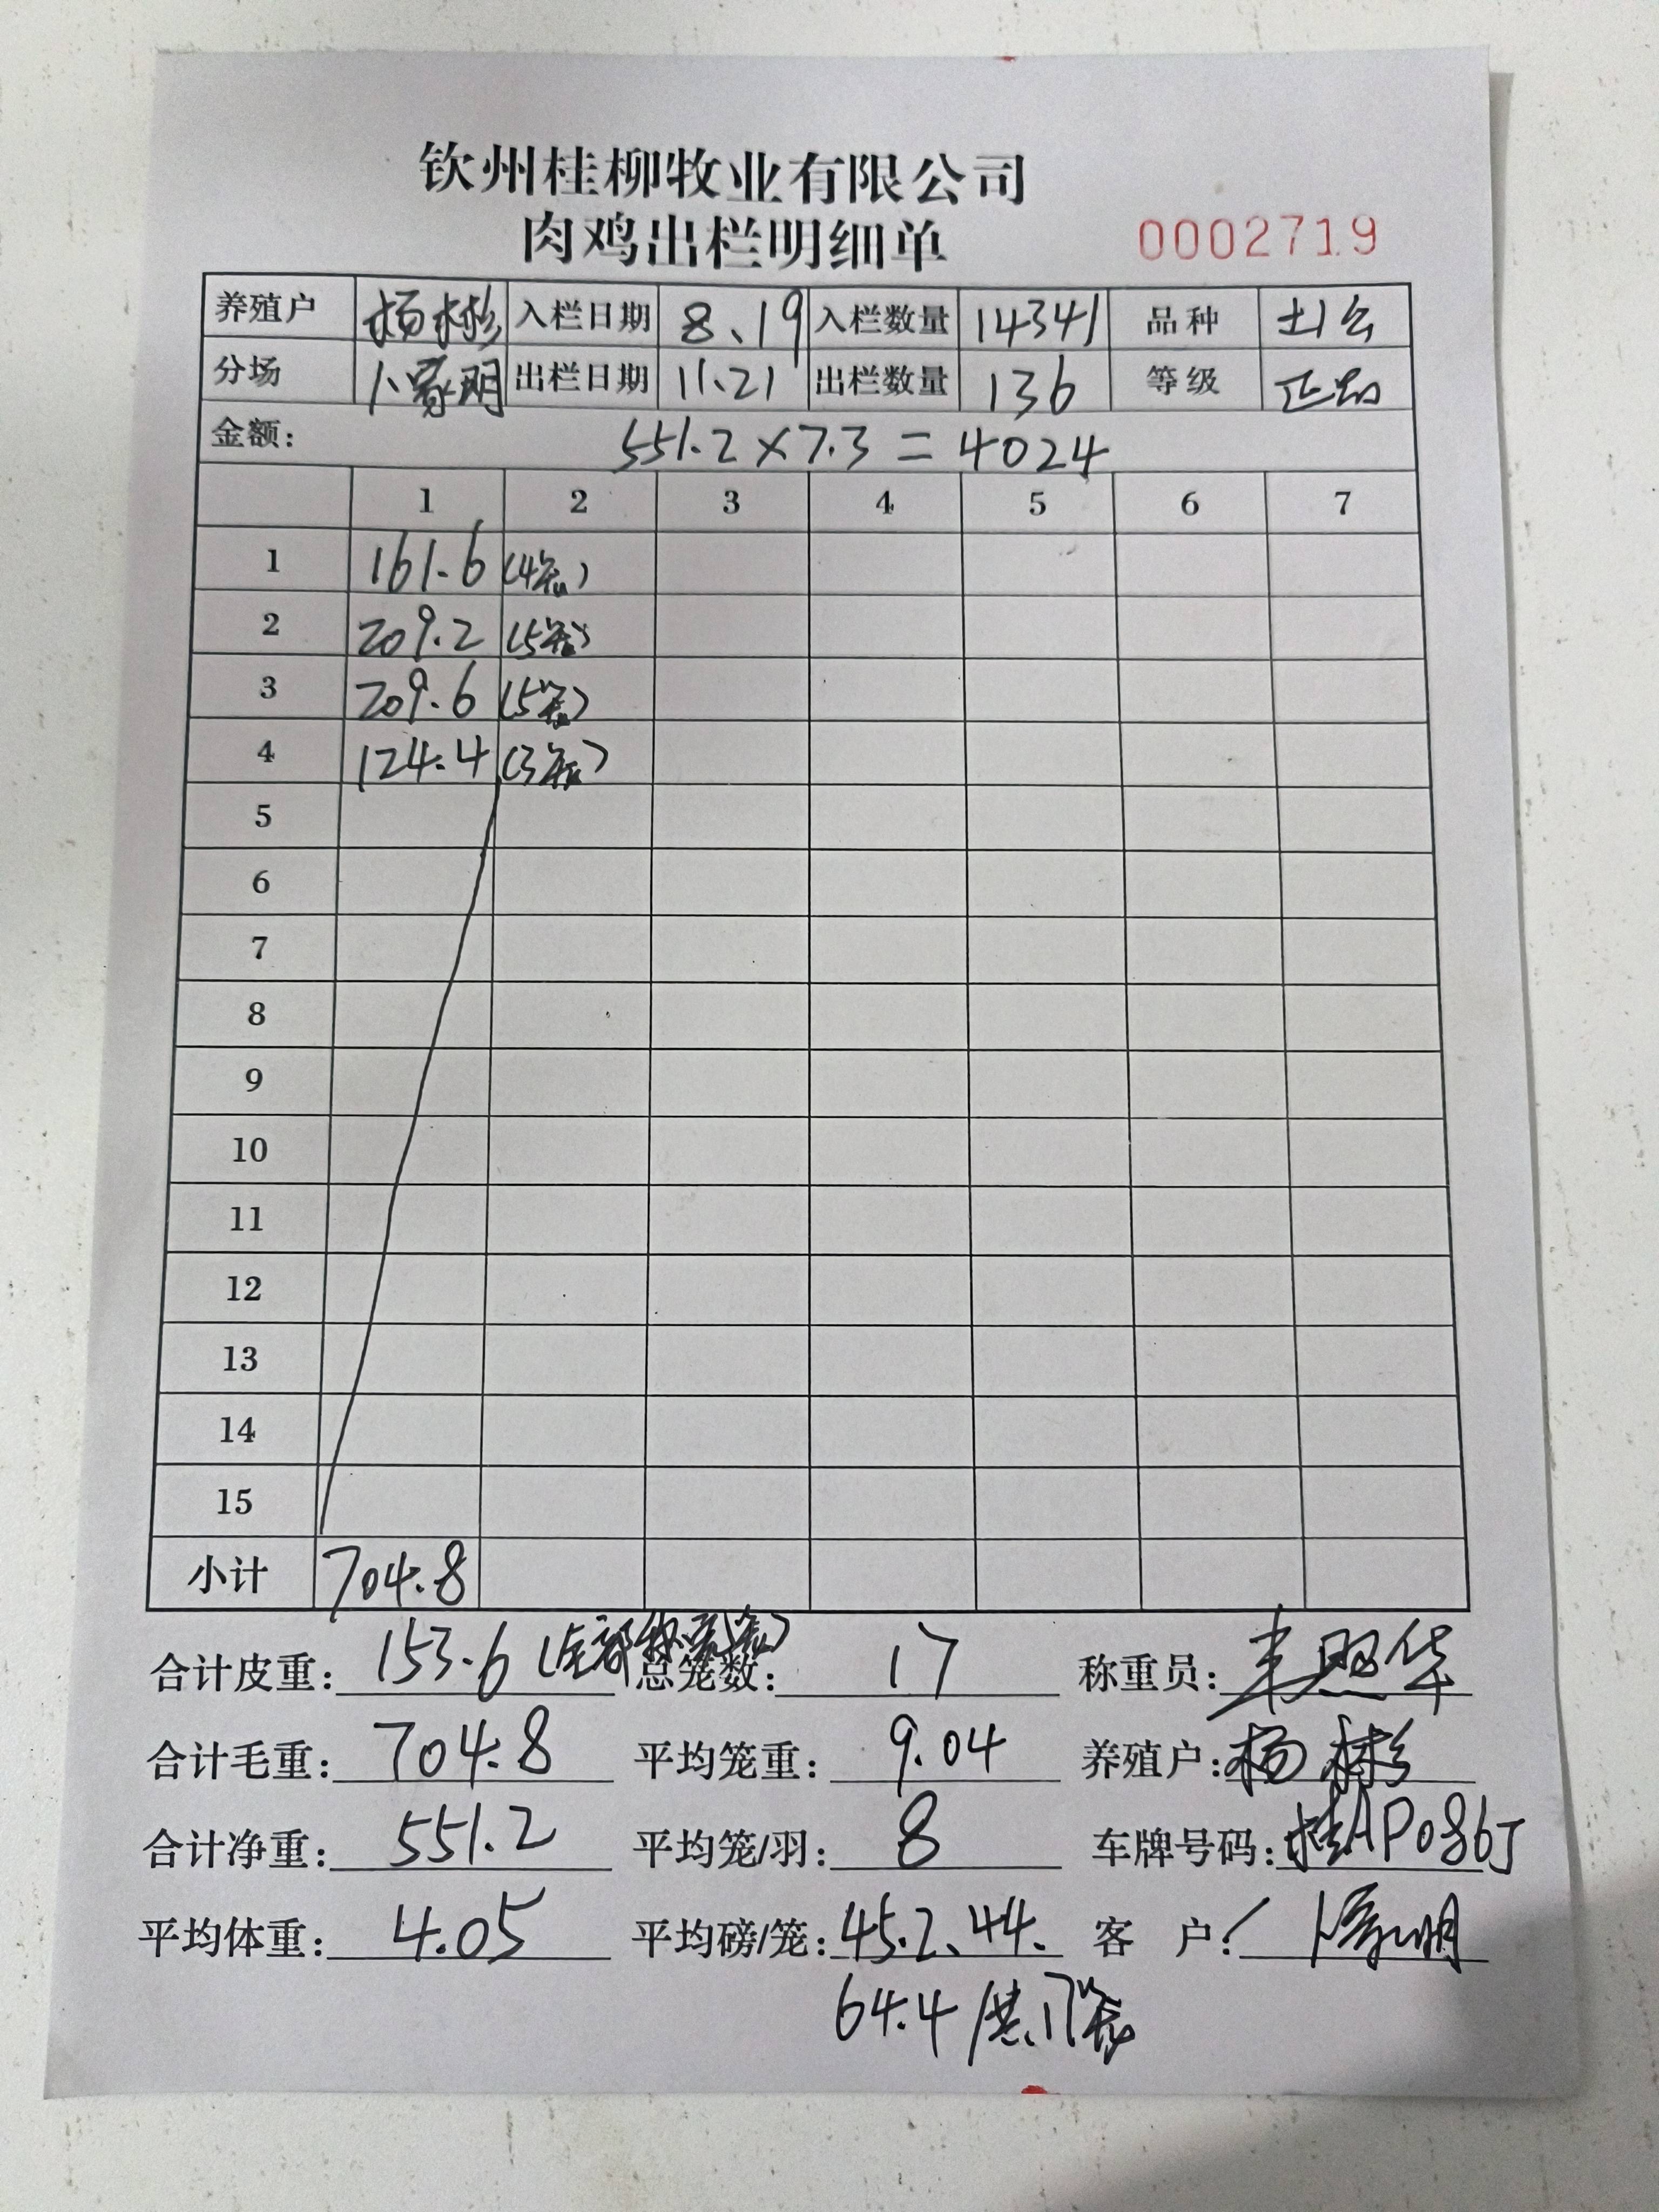 钦州桂柳牧业有限公司
肉鸡出栏明细单 0002719
养殖户 杨彬 入栏日期 8、19 入栏数量 14341 品种 土2公
分场 出栏日期 11.21 出栏数量 136 等级 正品
金额: 551.2×7.3=4024
1 2 3 4 5 6 7
1 161.6 (4笼)
2 209.2 (5笼)
3 209.6 (5笼)
4 124.4 (3笼)
5
6
7
8
9
10
11
12
13
14
15
小计 704.8
合计皮重: 153.6 总笼数: 17 称重员:
合计毛重: 704.8 平均笼重: 9.04 养殖户: 杨彬
合计净重: 551.2 平均笼/羽: 8 车牌号码:
平均体重: 4.05 平均磅/笼: 45.2、44. 客 户:
64.4 /共17笼